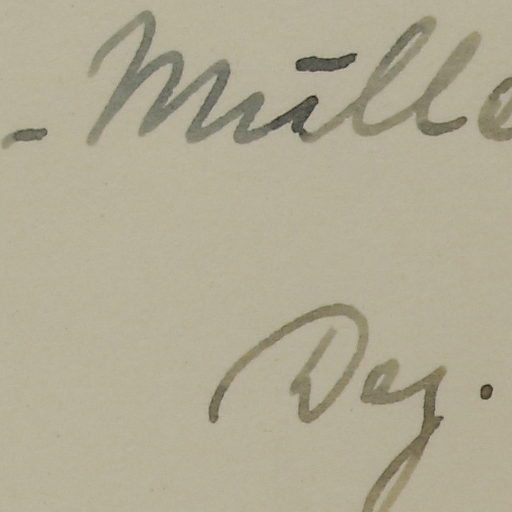 - Mülle
Dez.